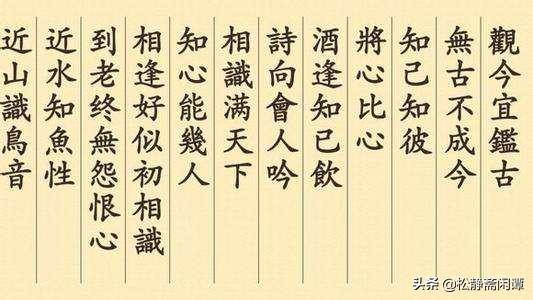 觀今宜鑑古
無古不成今
知己知彼
將心比心
酒逢知己飲
詩向會人吟
相識满天下
知心能幾人
相逢好似初相識
到老终無怨恨心
近水知魚性
近山識鳥音
头条 @松静斋闲谭